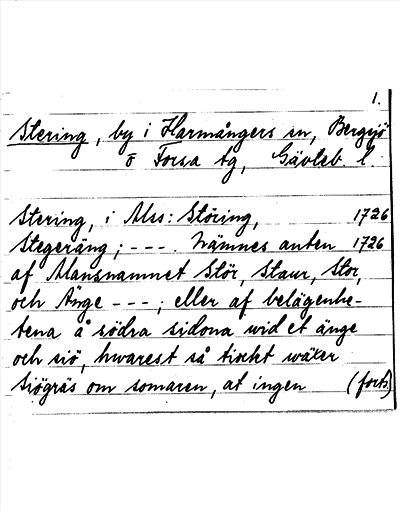 1.
Stering, by i Harmångers sn, Bergsjö
o Forsa tg, Gävleb. l.
Stering, i Mss: Störing, 1726
Stegeräng; ---. Nämnes anten 1726
af Mansnamnet Stör, Staur, Stor,
och Änge ---; eller af belägenhe-
tena å södra sidona wid et änge
och siö, hwarest så tiokt wäxer
Siögräs om somaren, at ingen (forts)